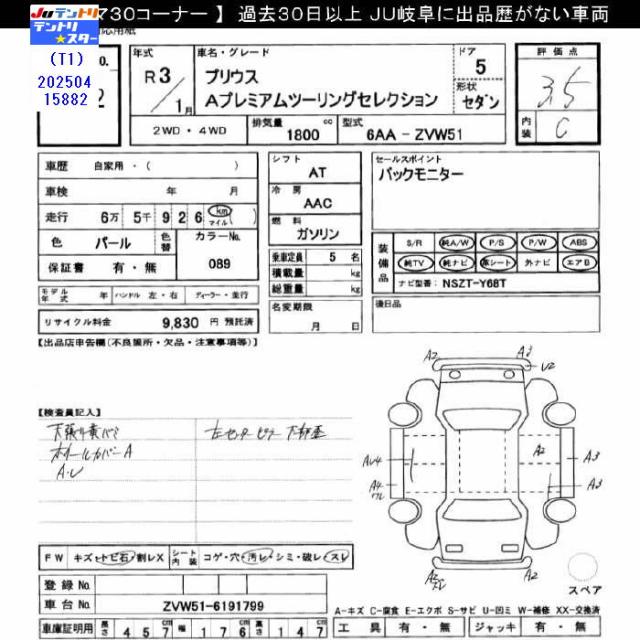 マ30コーナー 】 過去30日以上 JU岐阜に出品歴がない車両
JUテントリ
テントリ
スター
(T1)
202504
15882
年式
R 3 / 1月
車名・グレード
プリウス
Aプレミアムツーリングセレクション
ドア
5
形状
セダン
評価点
3.5
内装
C
2WD ・ 4WD
排気量
1800 cc
型式
6AA - ZVW51
車歴 自家用 ・ ( )
車検 年 月
走行 6万 5千 9 2 6 km マイル ( )
色 パール 色替 カラーNo. 089
保証書 有 ・ 無
モデル年式 年 ハンドル 左・右 ディーラー・並行
リサイクル料金 9,830 円 預託済
シフト
AT
冷房
AAC
燃料
ガソリン
乗車定員 5 名
積載量 kg
総重量 kg
名変期限
月 日
セールスポイント
バックモニター
装備品
S/R 純A/W P/S P/W ABS
純TV 純ナビ 革シート 外ナビ エアB
ナビ型番: NSZT-Y68T
後日品
【出品店申告欄(不良箇所・欠品・注意事項等)】
【検査員記入】
ホイールカバー A
A・U
左センターピラー 下部歪
A2 A3
U2
A2
AU4 A3
A4 A3
A2
A2
スペア
FW キズ・トビ石・割レX シート内装 コゲ・穴・汚レ・シミ・破レ・スレ
登録 No.
車台 No. ZVW51-6191799
車庫証明用 長さ 4 5 7 幅 1 7 6 高さ 1 4 7
A-キズ C-腐食 E-エクボ S-サビ U-凹ミ W-補修 XX-交換済
工具 有・無 ジャッキ 有・無